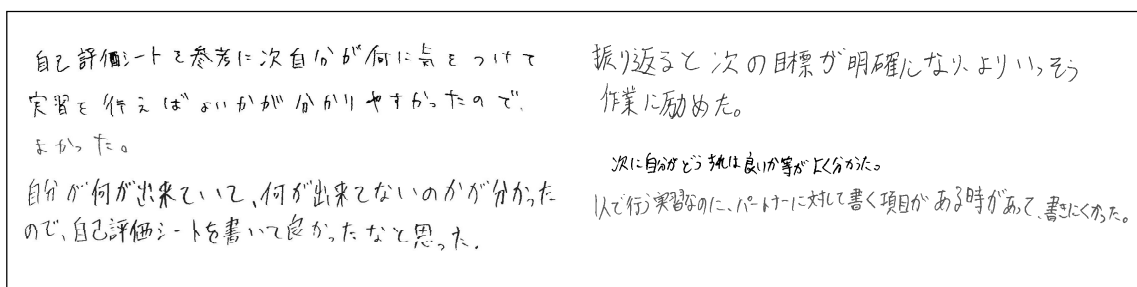 自己評価シートを参考に次自分が何に気をつけて
実習を行えばよいかが分かりやすかったので、
よかった。
自分が何が出来ていて、何が出来てないのかが分かった
ので、自己評価シートを書いて良かったなと思った。
振り返ると次の目標が明確になり、よりいっそう
作業に励めた。
次に自分がどうすれば良いか等がよく分かった。
1人で行う実習なのに、パートナーに対して書く項目がある時があって、書きにくかった。